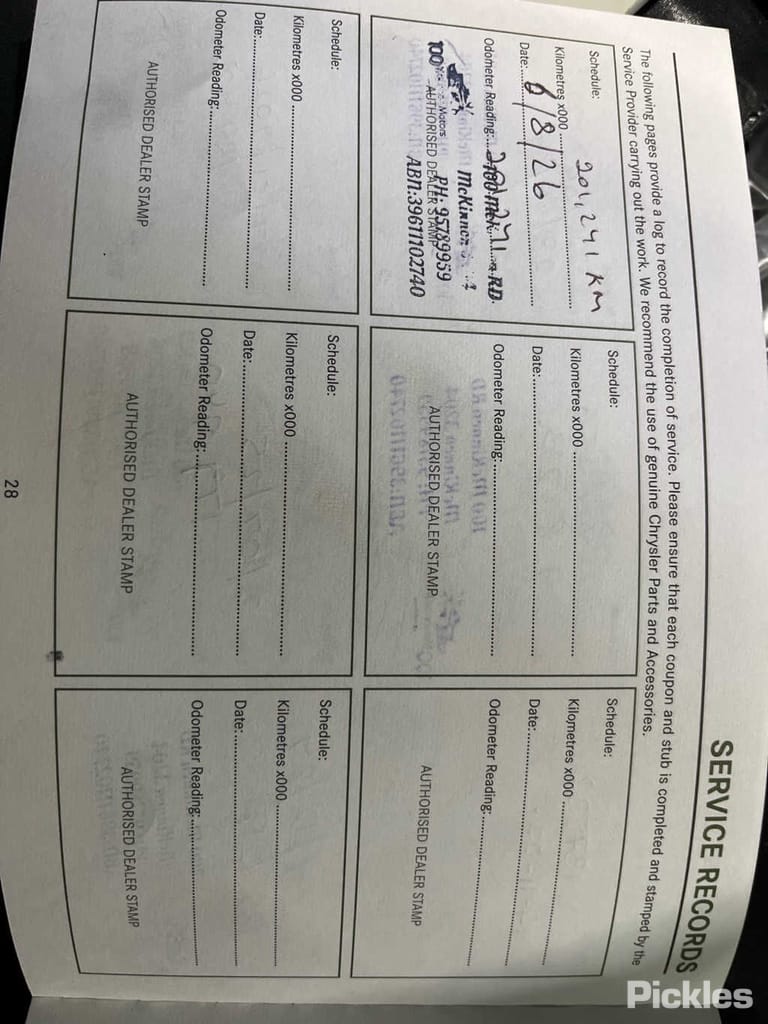 SERVICE RECORDS
The following pages provide a log to record the completion of service. Please ensure that each coupon and stub is completed and stamped by the
Service Provider carrying out the work. We recommend the use of genuine Chrysler Parts and Accessories.
Schedule:
Kilometres x000 201,241 KM
Date: 8/26
Odometer Reading:
McKinnon RD.
McKinnon
100 Motors
PH: 95789959
AUTHORISED DEALER STAMP
ABN:39611102740
Schedule:
Kilometres x000
Date:
Odometer Reading:
AUTHORISED DEALER STAMP
Schedule:
Kilometres x000
Date:
Odometer Reading:
AUTHORISED DEALER STAMP
Schedule:
Kilometres x000
Date:
Odometer Reading:
AUTHORISED DEALER STAMP
Schedule:
Kilometres x000
Date:
Odometer Reading:
AUTHORISED DEALER STAMP
Schedule:
Kilometres x000
Date:
Odometer Reading:
AUTHORISED DEALER STAMP
28
Pickles